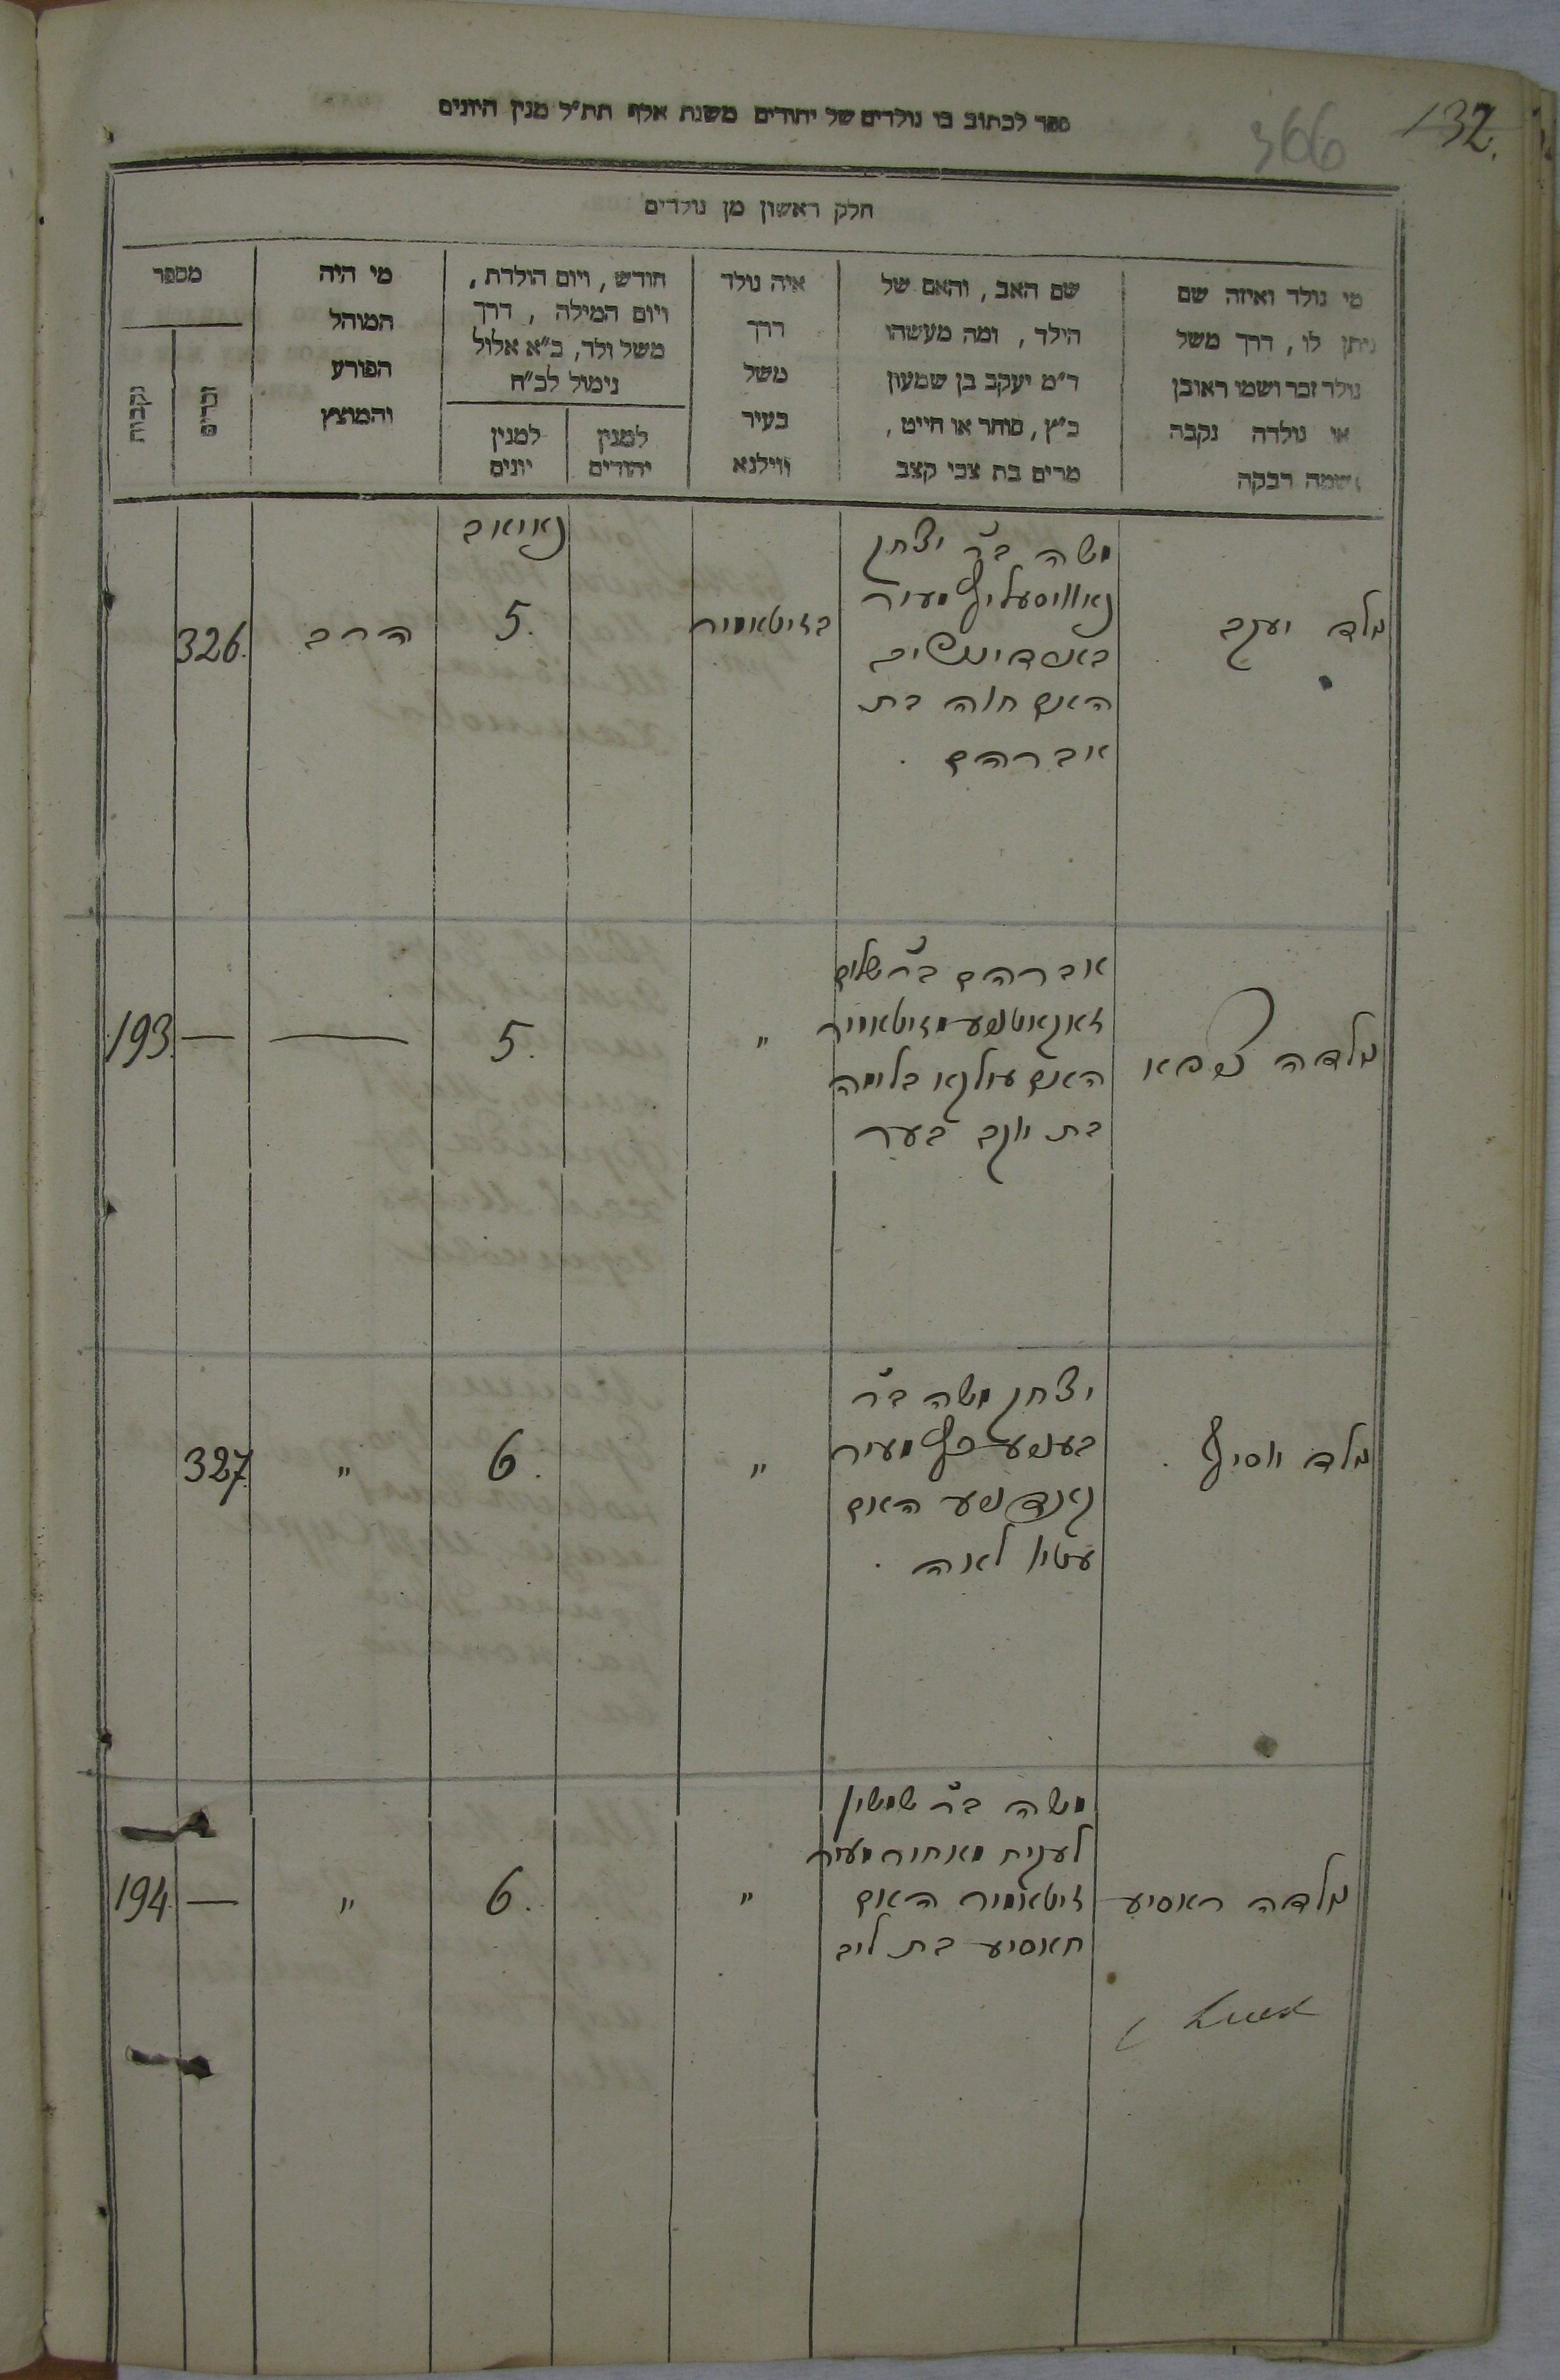 132.
366
ספר לכתוב בו נולדים של יהודים משנת אלף תת״ל מנין היונים
חלק ראשון מן נולדים
מי נולד ואיזה שם
ניתן לו, דרך משל
נולד זכר ושמו ראובן
או נולדה נקבה
ושמה רבקה
שם האב, והאם של
הילד, ומה מעשהו
ד״מ יעקב בן שמעון
כ״ץ, סוחר או חייט,
מרים בת צבי קצב
איה נולד
דרך
משל
בעיר
ווילנא
חודש, ויום הולדת,
ויום המילה, דרך
משל ולד, כ״א אלול
נימול לכ״ח
למנין
יהודים
למנין
יונים
מי היה
המוהל
הפורע
והמוצץ
מספר
זכרים
נקבות
נאיאב
נולד יעקב
משה בר יצחק
מעיר
האם חוה בת
אברהם.
בזיטאמיר
5.
הרב
326.
נולדה
אברהם בר שלום
מזיטאמיר
האם בלומה
בת יעקב בער
"
5.
—
—
193.
נולד יוסיף.
יצחק משה בר
מעיר
האם
לאה.
"
6.
"
327.
נולדה ראסיע
משה בר שמשון
מעיר
זיטאמיר האם
חאסיע בת ליב
"
6.
"
—
194.